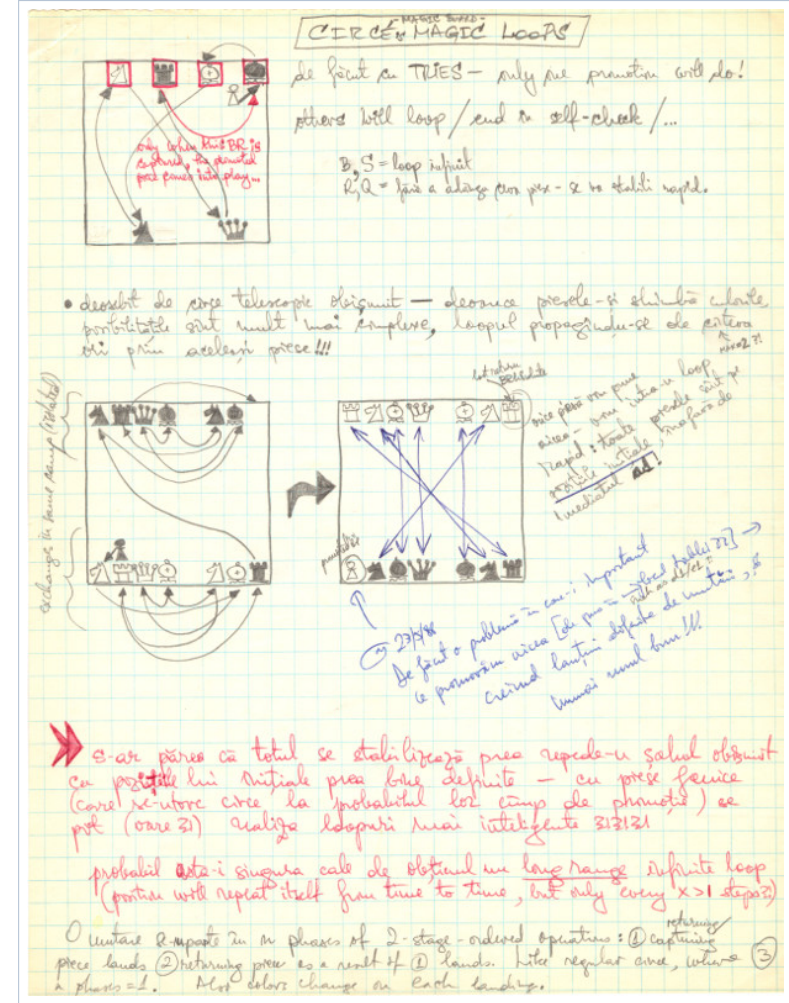 -MAGIC BOARD-
CIRCE & MAGIC LOOPS
de făcut cu TRIES — only one promotion will do!
others will loop / end in self-check / ...
only when this BR is
captured, the promoted
pod comes into play...
B, S = loop infinit
R, Q = fără a adăuga piese - se va stabili rapid.
• deosebit de circe telescopic obișnuit — deoarece piesele-și schimbă culorile,
posibilitățile sînt mult mai complexe, loopul propagîndu-se de cîteva
ori prin aceleași piese!!!
max 2?!
exchange in same camp (isolated)
orice piesă am pune
aicea - vom intra-n loop
rapid: toate piesele sînt pe
pozițiile inițiale, înafară de
imediatul ad!
promovabil
23/5/88
De făcut o problemă în care-i important
ce promovăm aicea [de pus în mijlocul tablei ?!] →
such as d1/e1 ?!
creînd lanțuri diferite de mutări, și
numai unul bun!!!
s-ar părea că totul se stabilizează prea repede-n șahul obișnuit
cu pozițiile lui inițiale prea bine definite — cu piese feerice
(care se-ntorc circe la probabilul loc cîmp de promoție) se
pot (oare ?!) realiza loopuri mai inteligente ?!?!?!
probabil asta-i singura cale de obținut un long range infinite loop
(position will repeat itself from time to time, but only every x>1 steps ?!)
O mutare se-mparte în n phases of 2-stage-ordered operations: ① capturing
returning
piece lands ② returning piece as a result of ① lands. Like regular circe, where
n phases = 1. Also colors change on each landing.
③